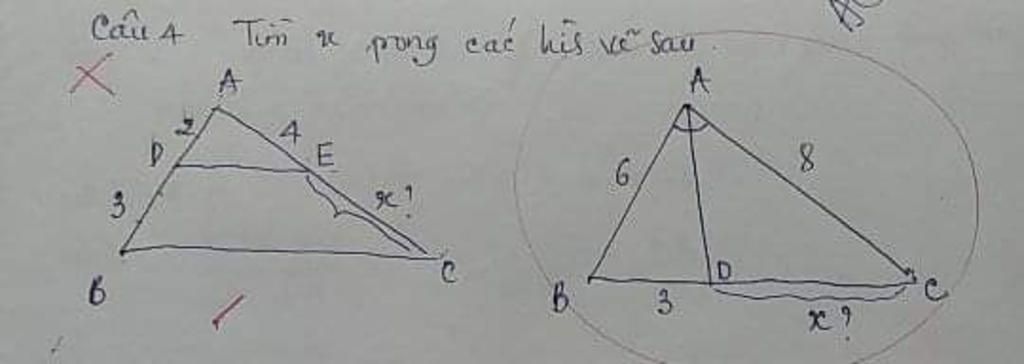 Câu 4 Tìm x trong các hình vẽ sau.
A
2 4
D E
3 x?
B C
A
6 8
B 3 D C
x?